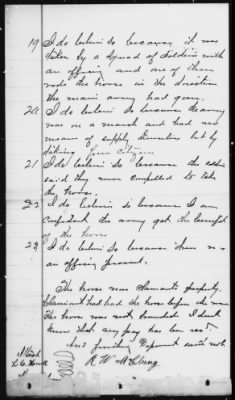 19 I do believe so because it was
taken by a squad of soldiers with
an officer and one of them
rode the horse in the direction
the main army had gone.
20 I do believe so because the army
was on a march and had no
means of supply themselves but by
taking from citizens
21 I do believe so because the soldiers
said they were compelled to take
the horse.
22 I do believe so because I am
confident the army got the benefit
of the horse
23 I do believe so because there was
an officer present.
The horse was claimants property.
Claimant had had the horse before the war
The horse was not branded. I dont
know that any pay has been
And further Deponent saith not
Attest
R W McClung